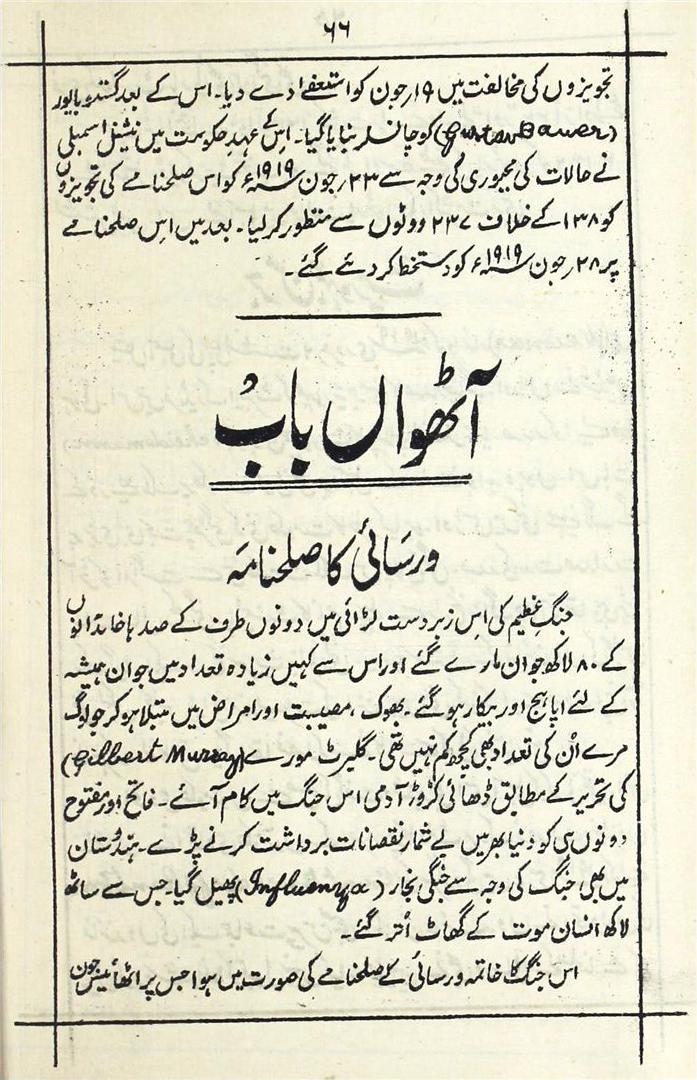 ۶۶
تجویزوں کی مخالفت میں ۱۹ جون کو استعفےٰ دے دیا۔ اس کے بعد گستو بایور
(Gustav Bauer) کو چانسلر بنایا گیا۔ اس کے عہدِ حکومت میں نیشنل اسمبلی
نے حالات کی مجبوری کی وجہ سے ۲۳؍ جون ۱۹۱۹ء کو اس صلحنامے کی تجویزوں
کو ۱۳۸ کے خلاف ۲۳۷ ووٹوں سے منظور کر لیا۔ بعد میں اس صلحنامے
پر ۲۸؍ جون ۱۹۱۹ء کو دستخط کر دئے گئے۔
آٹھواں باب
ورسائی کا صلحنامہ
جنگِ عظیم کی اِس زبردست لڑائی میں دونوں طرف کے صدہا خاندانوں
کے ۸۰ لاکھ جوان مارے گئے اور اس سے کہیں زیادہ تعداد میں جوان ہمیشہ
کے لئے اپاہج اور بیکار ہو گئے۔ بھوک، مصیبت اور امراض میں مبتلا ہو کر جو لوگ
مرے اُن کی تعداد بھی کچھ کم نہیں تھی۔ گلبرٹ مورے (Gilbert Murray)
کی تحریر کے مطابق ڈھائی کروڑ آدمی اس جنگ میں کام آئے۔ فاتح اور مفتوح
دونوں ہی کو دنیا بھر میں بے شمار نقصانات برداشت کرنے پڑے۔ ہندوستان
میں بھی جنگ کی وجہ سے جنگی بخار (Influenza) پھیل گیا۔ جس سے ساٹھ
لاکھ انسان موت کے گھاٹ اُتر گئے۔
اس جنگ کا خاتمہ ورسائی کے صلحنامے کی صورت میں ہوا جس پر اٹھائیس جون